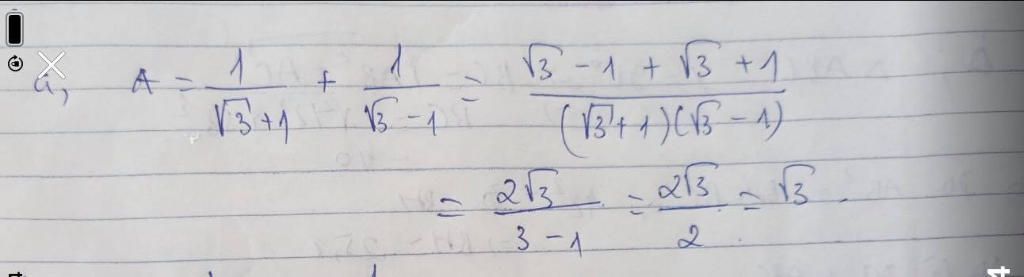 a, A = 1/(√3+1) + 1/(√3-1) = (√3 - 1 + √3 + 1)/((√3+1)(√3-1))
= 2√3/(3-1) = 2√3/2 = √3.